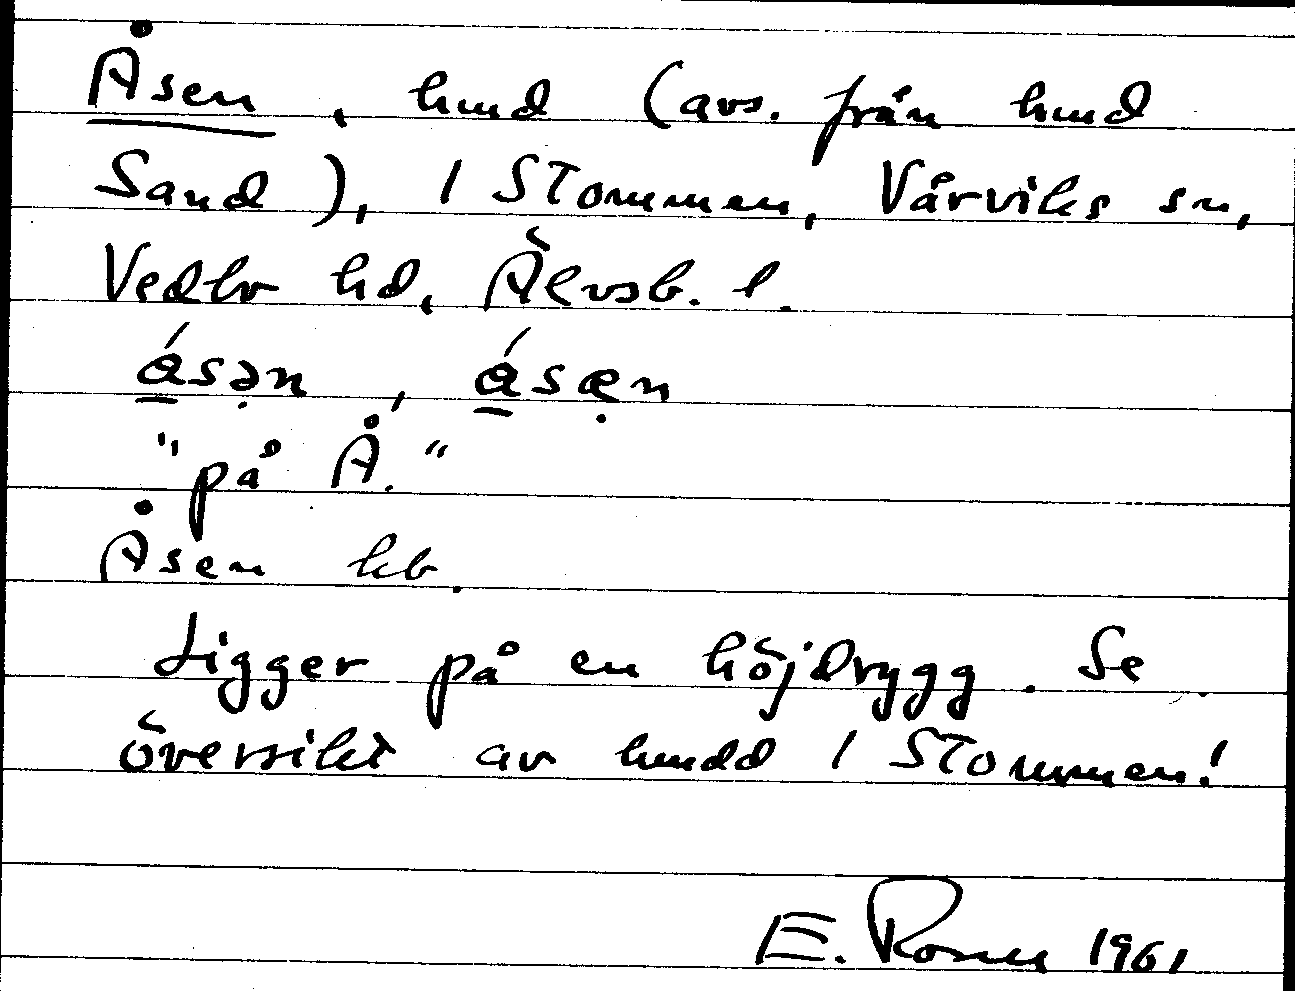 Åsen, hmd (avs. från hmd
Sand), 1 Stommen, Vårviks sn,
Vedbo hd, Älvsb. l.
ásən, ásæn
"på Å."
Åsen kb.
Ligger på en höjdrygg. Se
översikt av hmdd 1 Stommen!
E. 1961